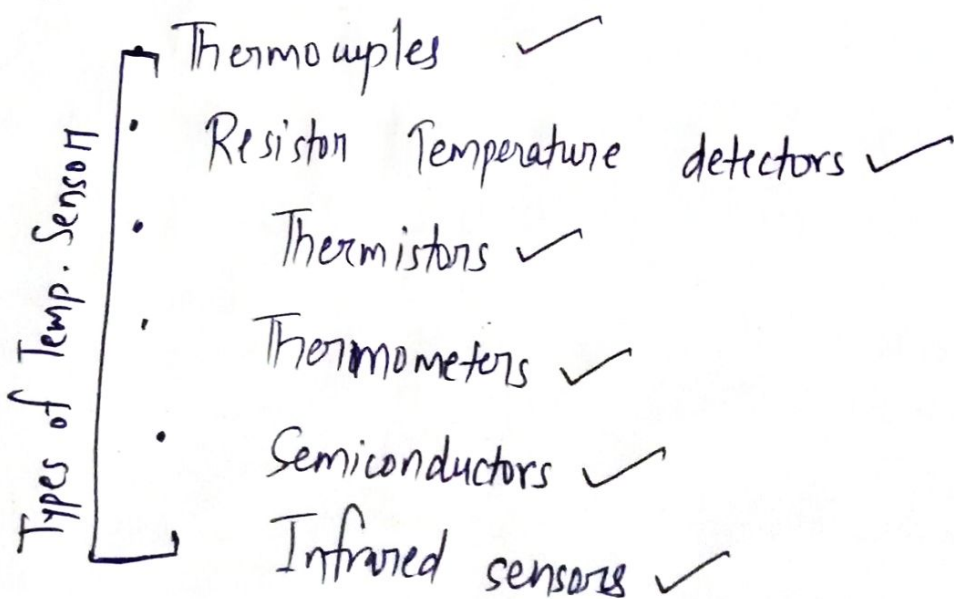 Types of Temp. Sensor
Thermocuples
Resistor Temperature detectors
Thermistors
Thermometers
Semiconductors
Infrared sensors